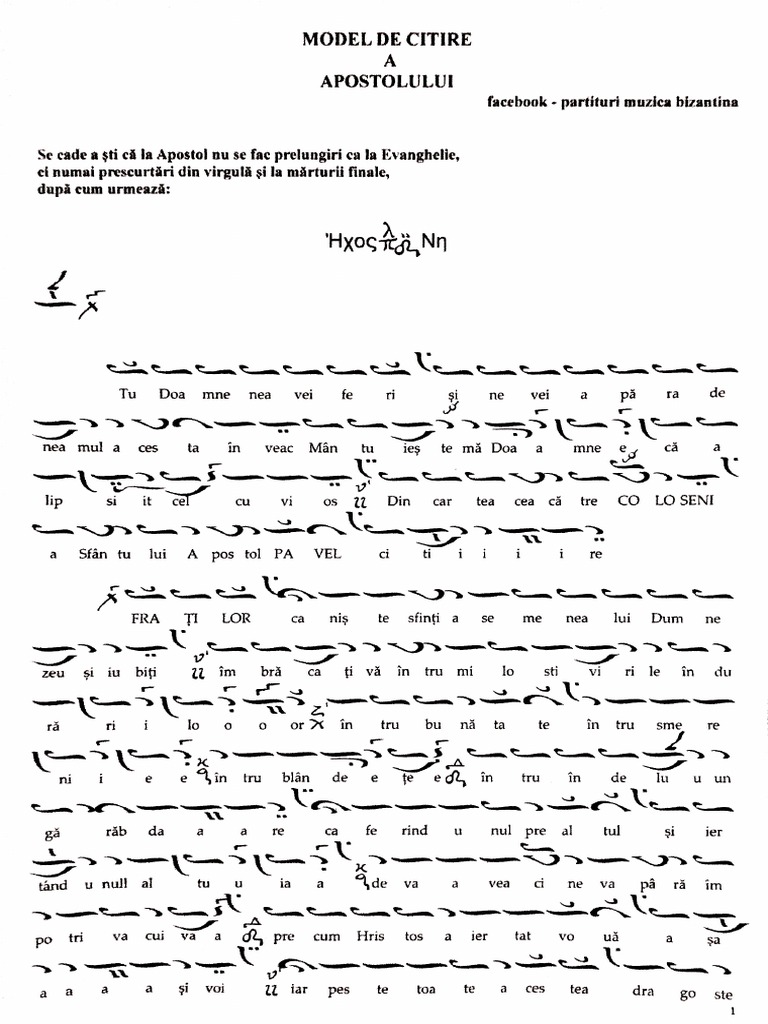 MODEL DE CITIRE
A
APOSTOLULUI
facebook - partituri muzica bizantina
Se cade a ști că la Apostol nu se fac prelungiri ca la Evanghelie,
ci numai prescurtări din virgulă și la mărturii finale,
după cum urmează:
Ἦχος λ π Νη
Tu Doa mne nea vei fe ri și ne vei a pă ra de
nea mul a ces ta în veac Mân tu ieș te mă Doa a mne e că a
lip si it cel cu vi os Din car tea cea că tre CO LO SENI
a Sfân tu lui A pos tol PA VEL ci ti i i i i re
FRA ȚI LOR ca niș te sfinți a se me nea lui Dum ne
zeu și iu biți îm bră ca ți vă în tru mi lo sti vi ri le în du
ră ri i lo o o or în tru bu nă ta te în tru sme re
ni i e e în tru blân de e țe e în tru în de lu u un
gă răb da a a re ca fe rind u nul pre al tul și ier
tând u null al tu u ia a de va a vea ci ne va pâ ră îm
po tri va cui va a pre cum Hris tos a ier tat vo uă a șa
a a a a și voi iar pes te toa te a ces tea dra go ste
1